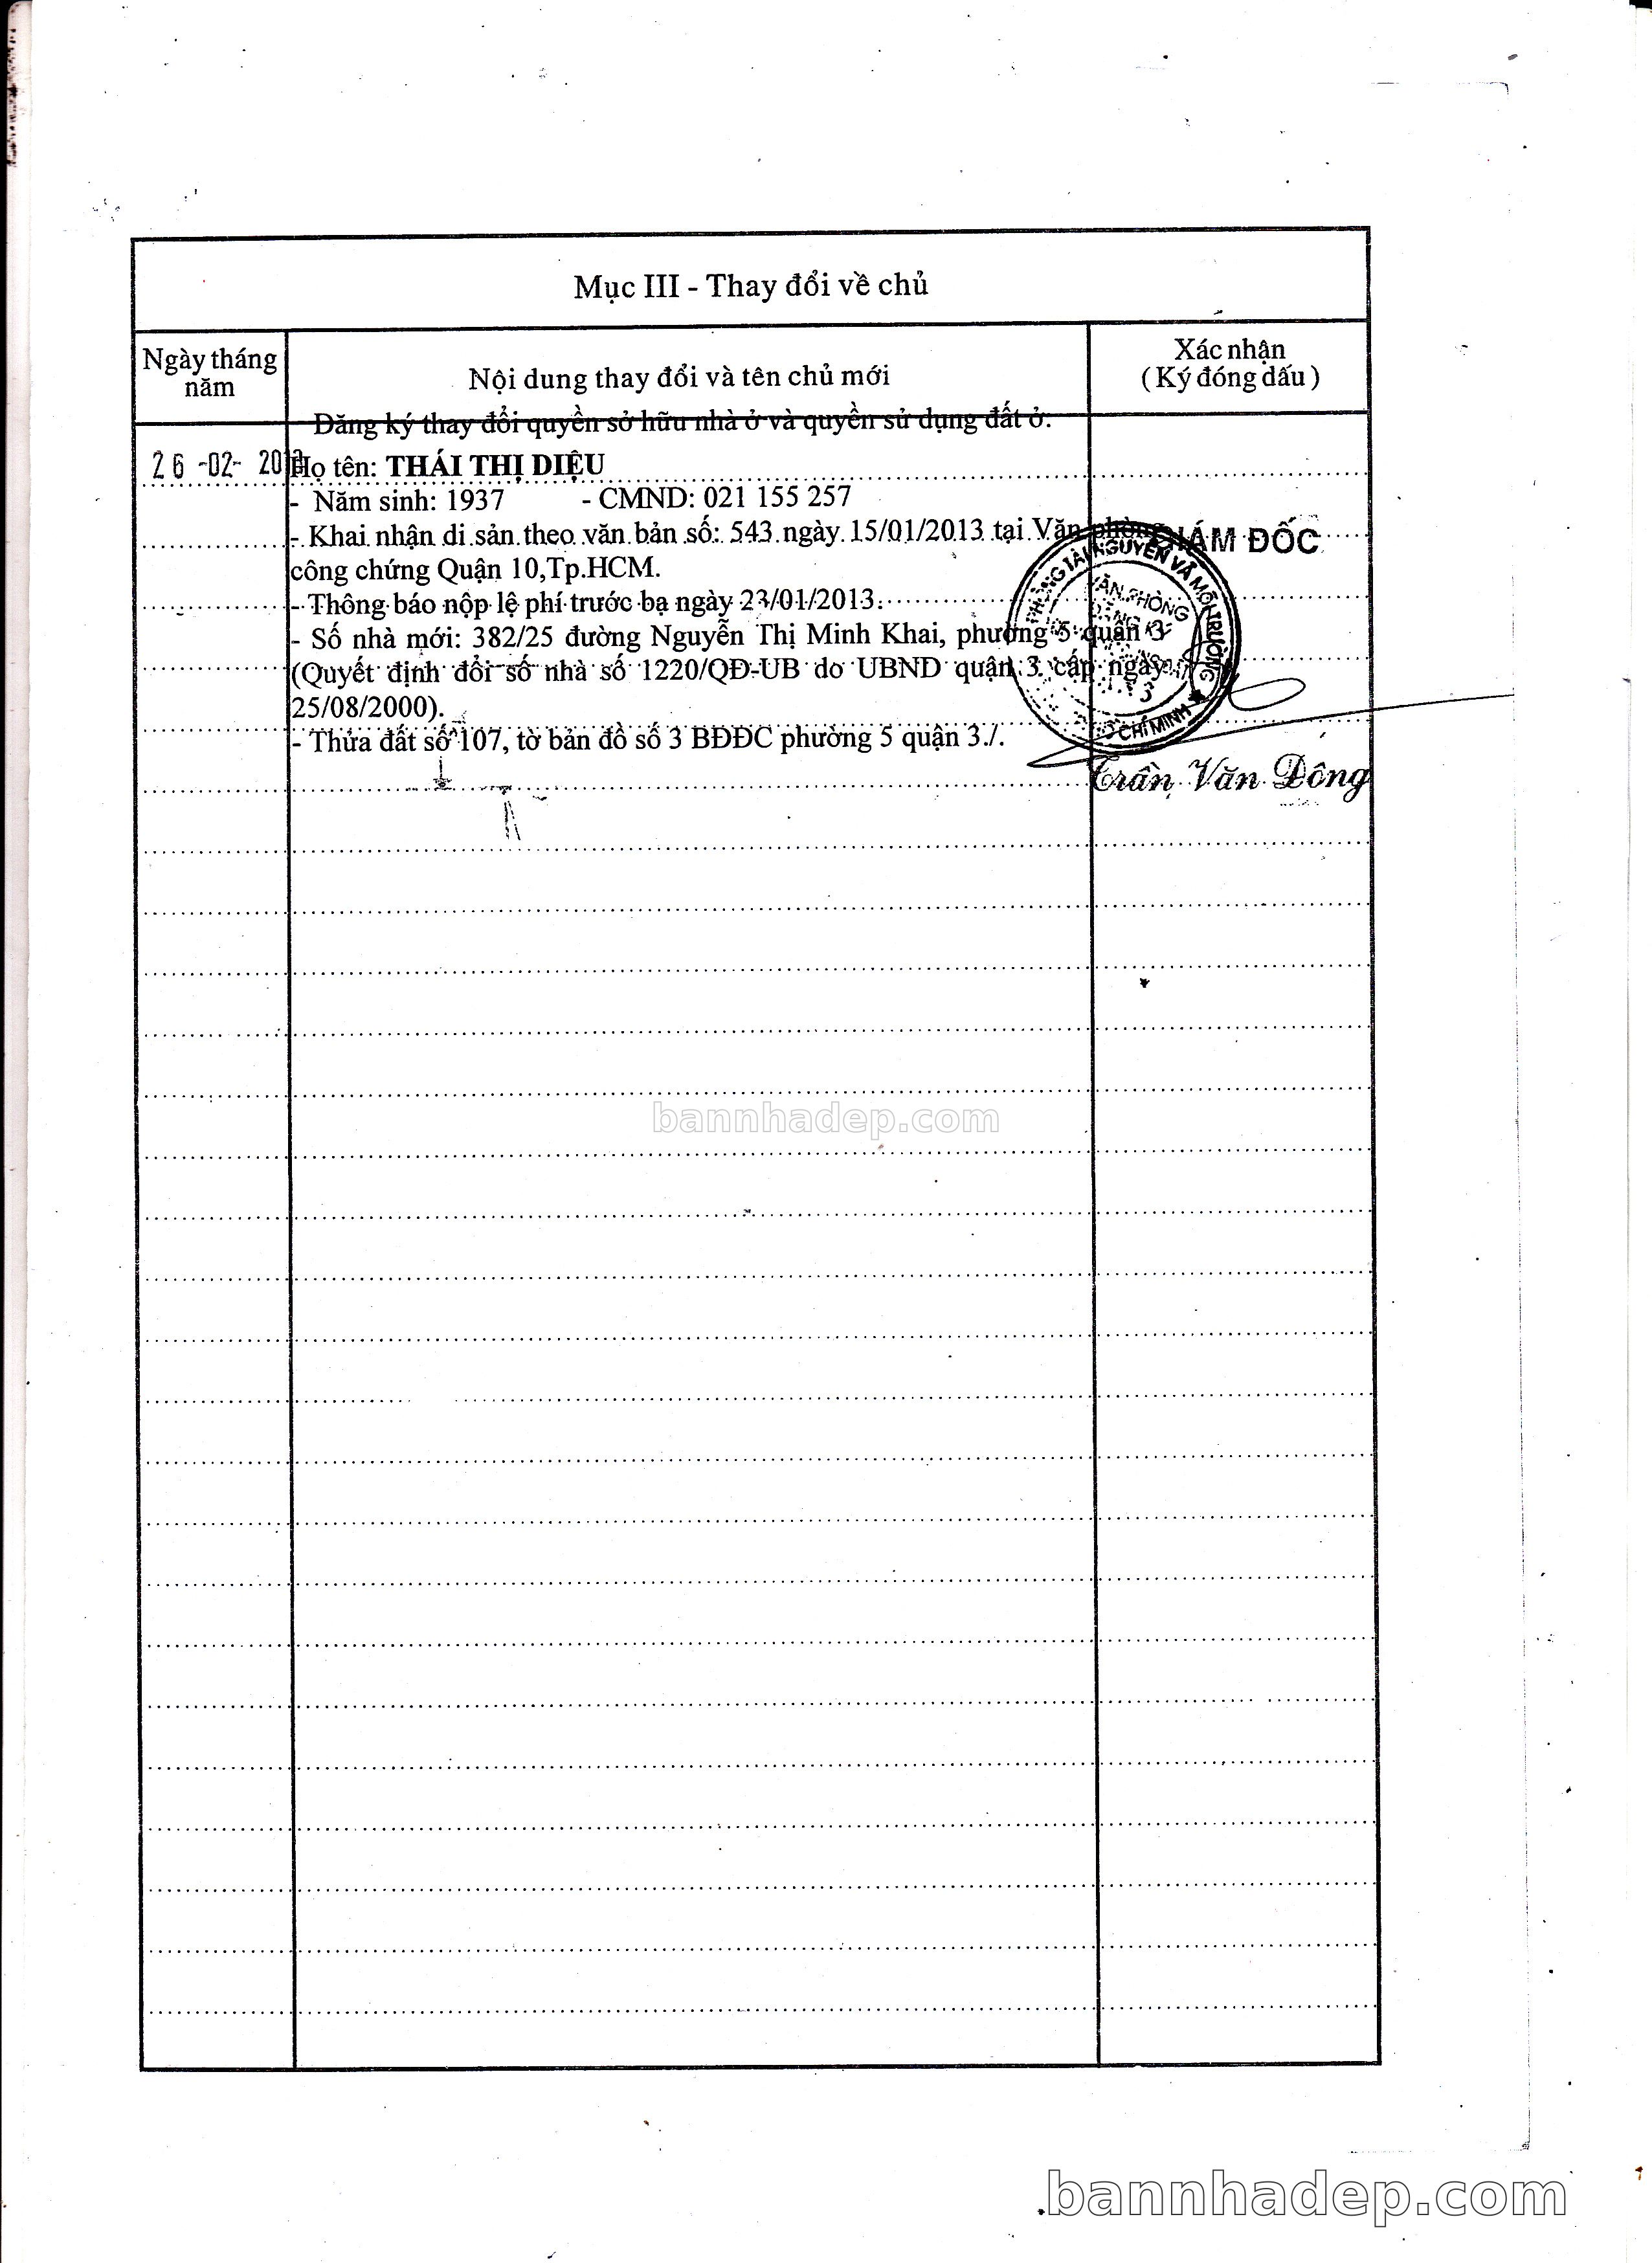 Mục III - Thay đổi về chủ
Ngày tháng
năm
Nội dung thay đổi và tên chủ mới
Xác nhận
( Ký đóng dấu )
Đăng ký thay đổi quyền sở hữu nhà ở và quyền sử dụng đất ở:
26 -02- 2013
Họ tên: THÁI THỊ DIỆU
- Năm sinh: 1937 - CMND: 021 155 257
- Khai nhận di sản theo văn bản số: 543 ngày 15/01/2013 tại Văn phòng
công chứng Quận 10,Tp.HCM.
- Thông báo nộp lệ phí trước bạ ngày 23/01/2013.
- Số nhà mới: 382/25 đường Nguyễn Thị Minh Khai, phường 5 quận 3
(Quyết định đổi số nhà số 1220/QĐ-UB do UBND quận 3 cấp ngày
25/08/2000).
- Thửa đất số 107, tờ bản đồ số 3 BĐĐC phường 5 quận 3./.
GIÁM ĐỐC
PHÒNG TÀI NGUYÊN VÀ MÔI TRƯỜNG
VĂN PHÒNG
ĐĂNG KÝ
3
CHÍ MINH
Trần Văn Đông
bannhadep.com
bannhadep.com